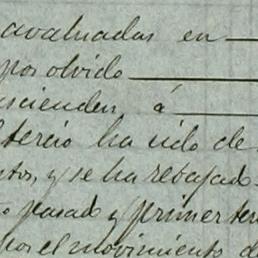 avaluadas en
por olvido
ascienden á
tercio ha sido de
y se ha rebajado
pasado y primer ter
por el movimiento d